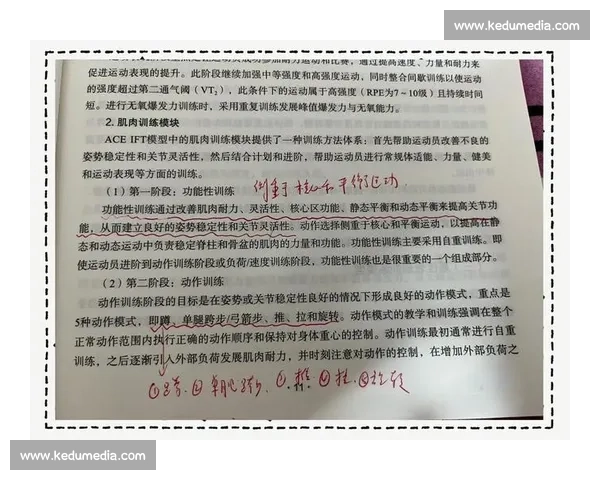 www.kedumedia.com
促进运动表现的提升。此阶段继续加强中等强度和高强度运动，同时整合间歇训练以使运动
的强度超过第二通气阈（VT₂），此条件下的运动属于高强度（RPE为7～10级）且持续时间
短。进行无氧爆发力训练时，采用重复训练发展峰值爆发力与无氧能力。
2. 肌肉训练模块
ACE IFT模型中的肌肉训练模块提供了一种训练方法体系：首先帮助运动员改善不良的
姿势稳定性和关节灵活性，然后结合计划和进阶，帮助运动员进行常规体适能、力量、健美
和运动表现等方面的训练。
（1）第一阶段：功能性训练 侧重于核心和平衡运动
功能性训练通过改善肌肉耐力、灵活性、核心区功能、静态平衡和动态平衡来提高关节功
能，从而建立良好的姿势稳定性和关节灵活性。动作选择侧重于核心和平衡运动，以提高在静
态和动态运动中负责稳定脊柱和骨盆的肌肉的力量和功能。功能性训练主要采用自重训练。即
使运动员进阶到动作训练阶段或负荷/速度训练阶段，功能性训练也是很重要的一个组成部分。
（2）第二阶段：动作训练
动作训练阶段的目标是在姿势或关节稳定性良好的情况下形成良好的动作模式，重点是
5种动作模式，即蹲、单腿跨步/弓箭步、推、拉和旋转。动作模式的教学和训练强调在整个
正常动作范围内执行正确的动作顺序和保持对身体重心的控制。动作训练最初通常进行自重
训练，之后逐渐引入外部负荷发展肌肉耐力，并时刻注意对动作的控制，在增加外部负荷之
www.kedumedia.com